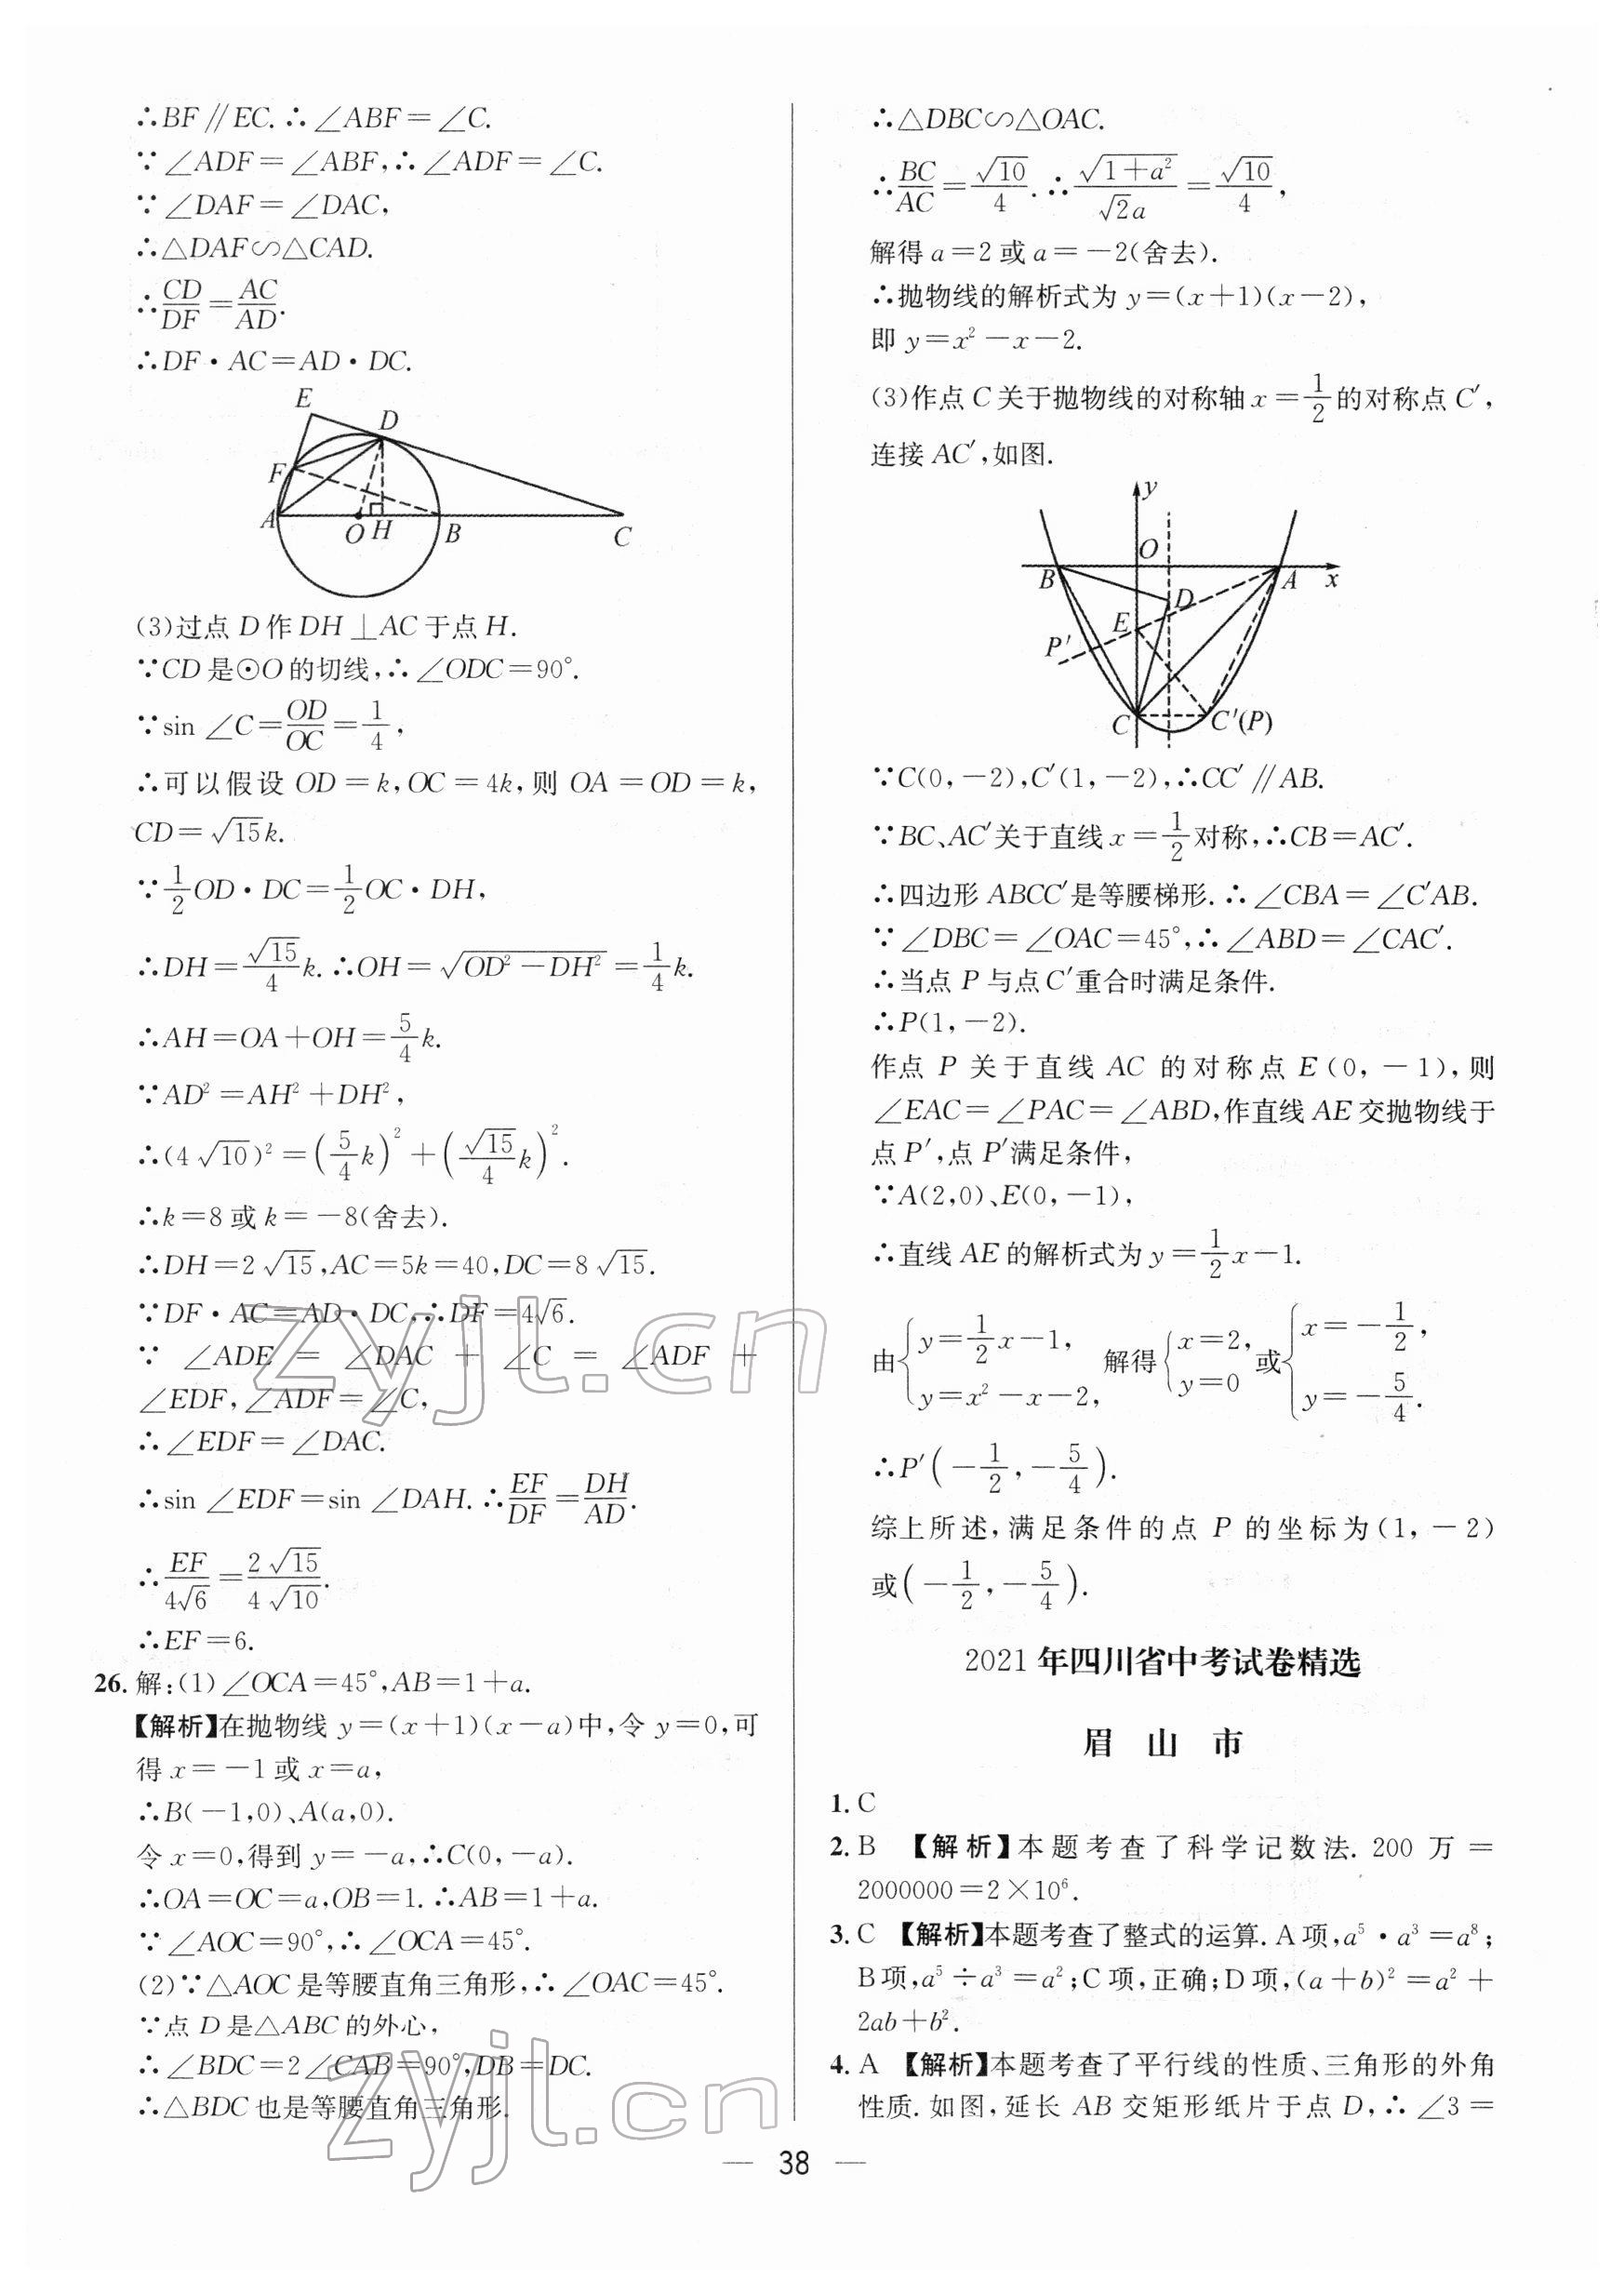 ∴BF∥EC.∴∠ABF=∠C.
∵∠ADF=∠ABF,∴∠ADF=∠C.
∵∠DAF=∠DAC,
∴△DAF∽△CAD.
∴CD/DF=AC/AD.
∴DF·AC=AD·DC.
E
D
F
A
O
H
B
C
(3)过点 D 作 DH⊥AC 于点 H.
∵CD 是⊙O 的切线,∴∠ODC=90°.
∵sin∠C=OD/OC=1/4,
∴可以假设 OD=k,OC=4k,则 OA=OD=k,
CD=√15k.
∵1/2OD·DC=1/2OC·DH,
∴DH=√15/4k.∴OH=√(OD²-DH²)=1/4k.
∴AH=OA+OH=5/4k.
∵AD²=AH²+DH²,
∴(4√10)²=(5/4k)²+(√15/4k)².
∴k=8 或 k=-8(舍去).
∴DH=2√15,AC=5k=40,DC=8√15.
∵DF·AC=AD·DC,∴DF=4√6.
∵∠ADE=∠DAC+∠C=∠ADF+
∠EDF,∠ADF=∠C,
∴∠EDF=∠DAC.
∴sin∠EDF=sin∠DAH.∴EF/DF=DH/AD.
∴EF/4√6=2√15/4√10.
∴EF=6.
26.解:(1)∠OCA=45°,AB=1+a.
【解析】在抛物线 y=(x+1)(x-a)中,令 y=0,可
得 x=-1 或 x=a,
∴B(-1,0)、A(a,0).
令 x=0,得到 y=-a,∴C(0,-a).
∴OA=OC=a,OB=1.∴AB=1+a.
∵∠AOC=90°,∴∠OCA=45°.
(2)∵△AOC 是等腰直角三角形,∴∠OAC=45°.
∵点 D 是△ABC 的外心,
∴∠BDC=2∠CAB=90°,DB=DC.
∴△BDC 也是等腰直角三角形.
∴△DBC∽△OAC.
∴BC/AC=√10/4.∴√(1+a²)/√2a=√10/4,
解得 a=2 或 a=-2(舍去).
∴抛物线的解析式为 y=(x+1)(x-2),
即 y=x²-x-2.
(3)作点 C 关于抛物线的对称轴 x=1/2 的对称点 C′,
连接 AC′,如图.
y
O
B
A
x
D
E
P′
C
C′(P)
∵C(0,-2),C′(1,-2),∴CC′∥AB.
∵BC、AC′关于直线 x=1/2 对称,∴CB=AC′.
∴四边形 ABCC′是等腰梯形.∴∠CBA=∠C′AB.
∵∠DBC=∠OAC=45°,∴∠ABD=∠CAC′.
∴当点 P 与点 C′重合时满足条件.
∴P(1,-2).
作点 P 关于直线 AC 的对称点 E(0,-1),则
∠EAC=∠PAC=∠ABD,作直线 AE 交抛物线于
点 P′,点 P′满足条件,
∵A(2,0)、E(0,-1),
∴直线 AE 的解析式为 y=1/2x-1.
由{y=1/2x-1, y=x²-x-2, 解得{x=2, y=0 或{x=-1/2, y=-5/4.
∴P′(-1/2,-5/4).
综上所述,满足条件的点 P 的坐标为(1,-2)
或(-1/2,-5/4).
2021年四川省中考试卷精选
眉 山 市
1.C
2.B 【解析】本题考查了科学记数法.200 万=
2000000=2×10⁶.
3.C 【解析】本题考查了整式的运算.A 项,a⁵·a³=a⁸;
B 项,a⁵÷a³=a²;C 项,正确;D 项,(a+b)²=a²+
2ab+b².
4.A 【解析】本题考查了平行线的性质、三角形的外角
性质.如图,延长 AB 交矩形纸片于点 D,∴∠3=
— 38 —
zyjl.cn
zyjl.cn